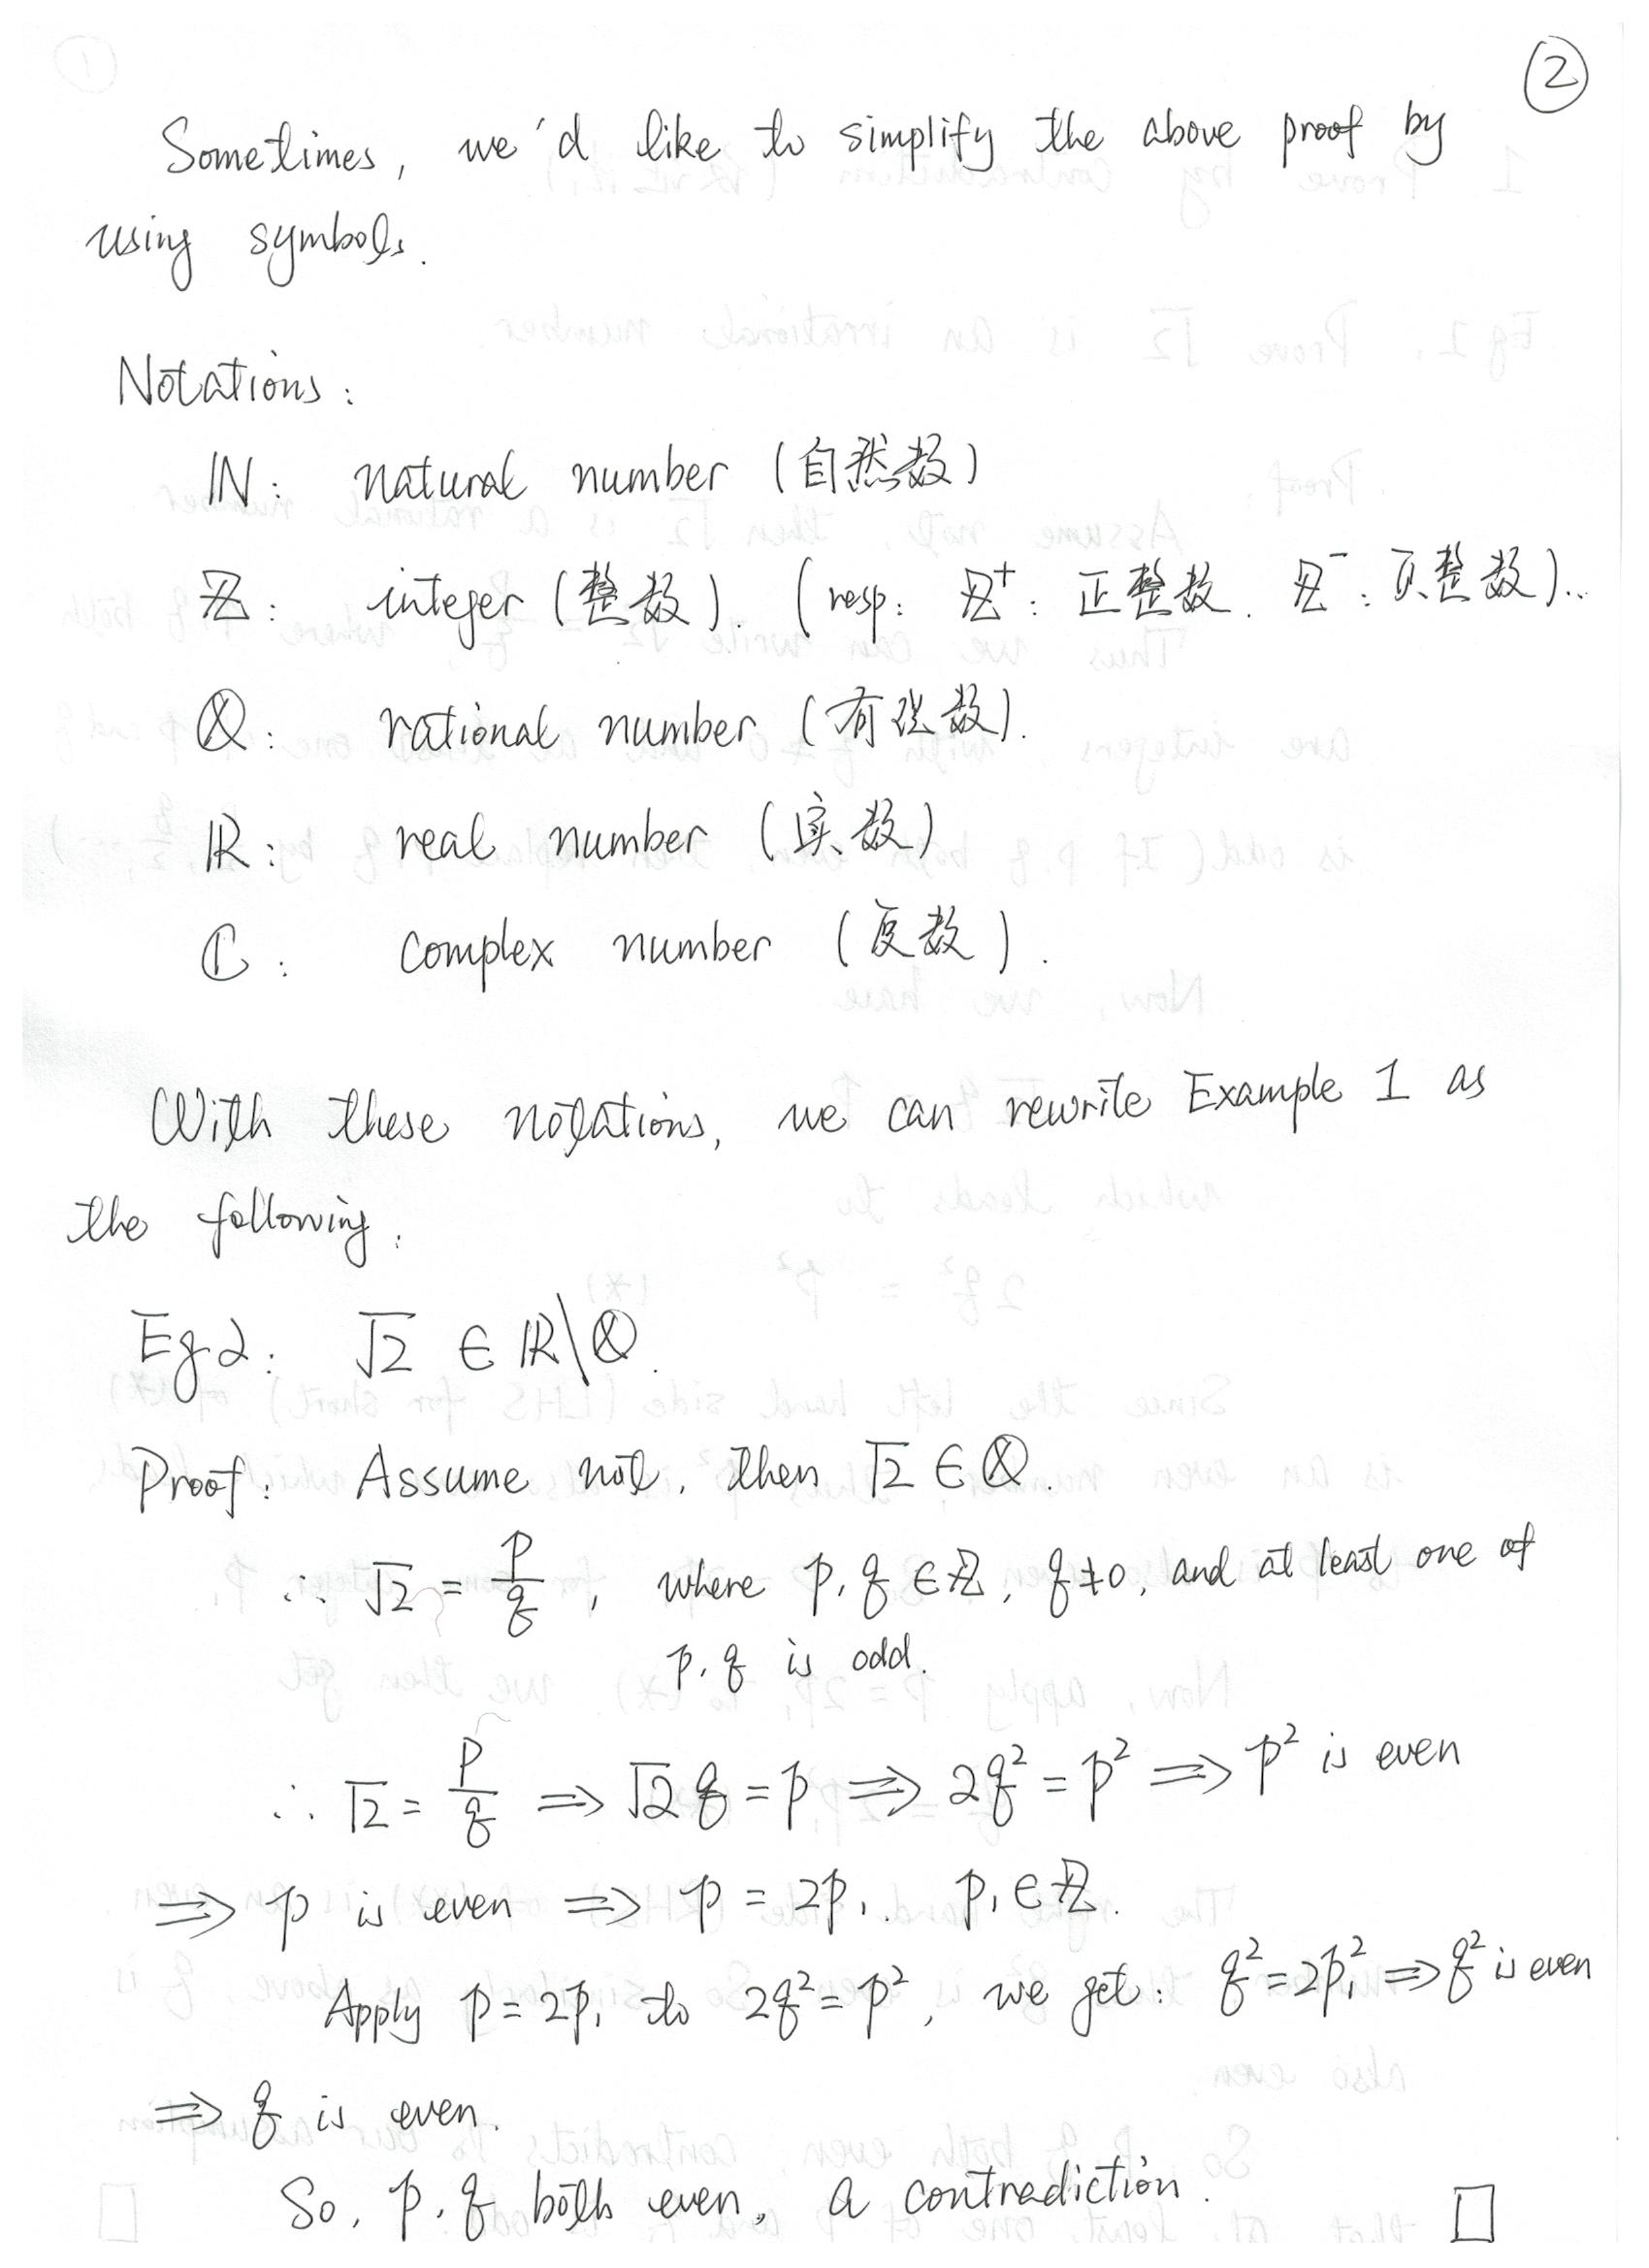 ②
Sometimes, we'd like to simplify the above proof by
using symbols.
Notations:
ℕ: natural number (自然数)
ℤ: integer (整数). (resp: ℤ⁺: 正整数. ℤ⁻: 负整数)..
ℚ: rational number (有理数).
ℝ: real number (实数)
ℂ: complex number (复数).
With these notations, we can rewrite Example 1 as
the following.
Eg 2: √2 ∈ ℝ\ℚ.
Proof: Assume not, then √2 ∈ ℚ.
∴ √2 = p/q, where p, q ∈ ℤ, q ≠ 0, and at least one of
p, q is odd.
∴ √2 = p/q ⟹ √2 q = p ⟹ 2q² = p² ⟹ p² is even
⟹ p is even ⟹ p = 2p₁. p₁ ∈ ℤ.
Apply p = 2p₁ to 2q² = p², we get: q² = 2p₁² ⟹ q² is even
⟹ q is even.
So, p, q both even, a contradiction. □